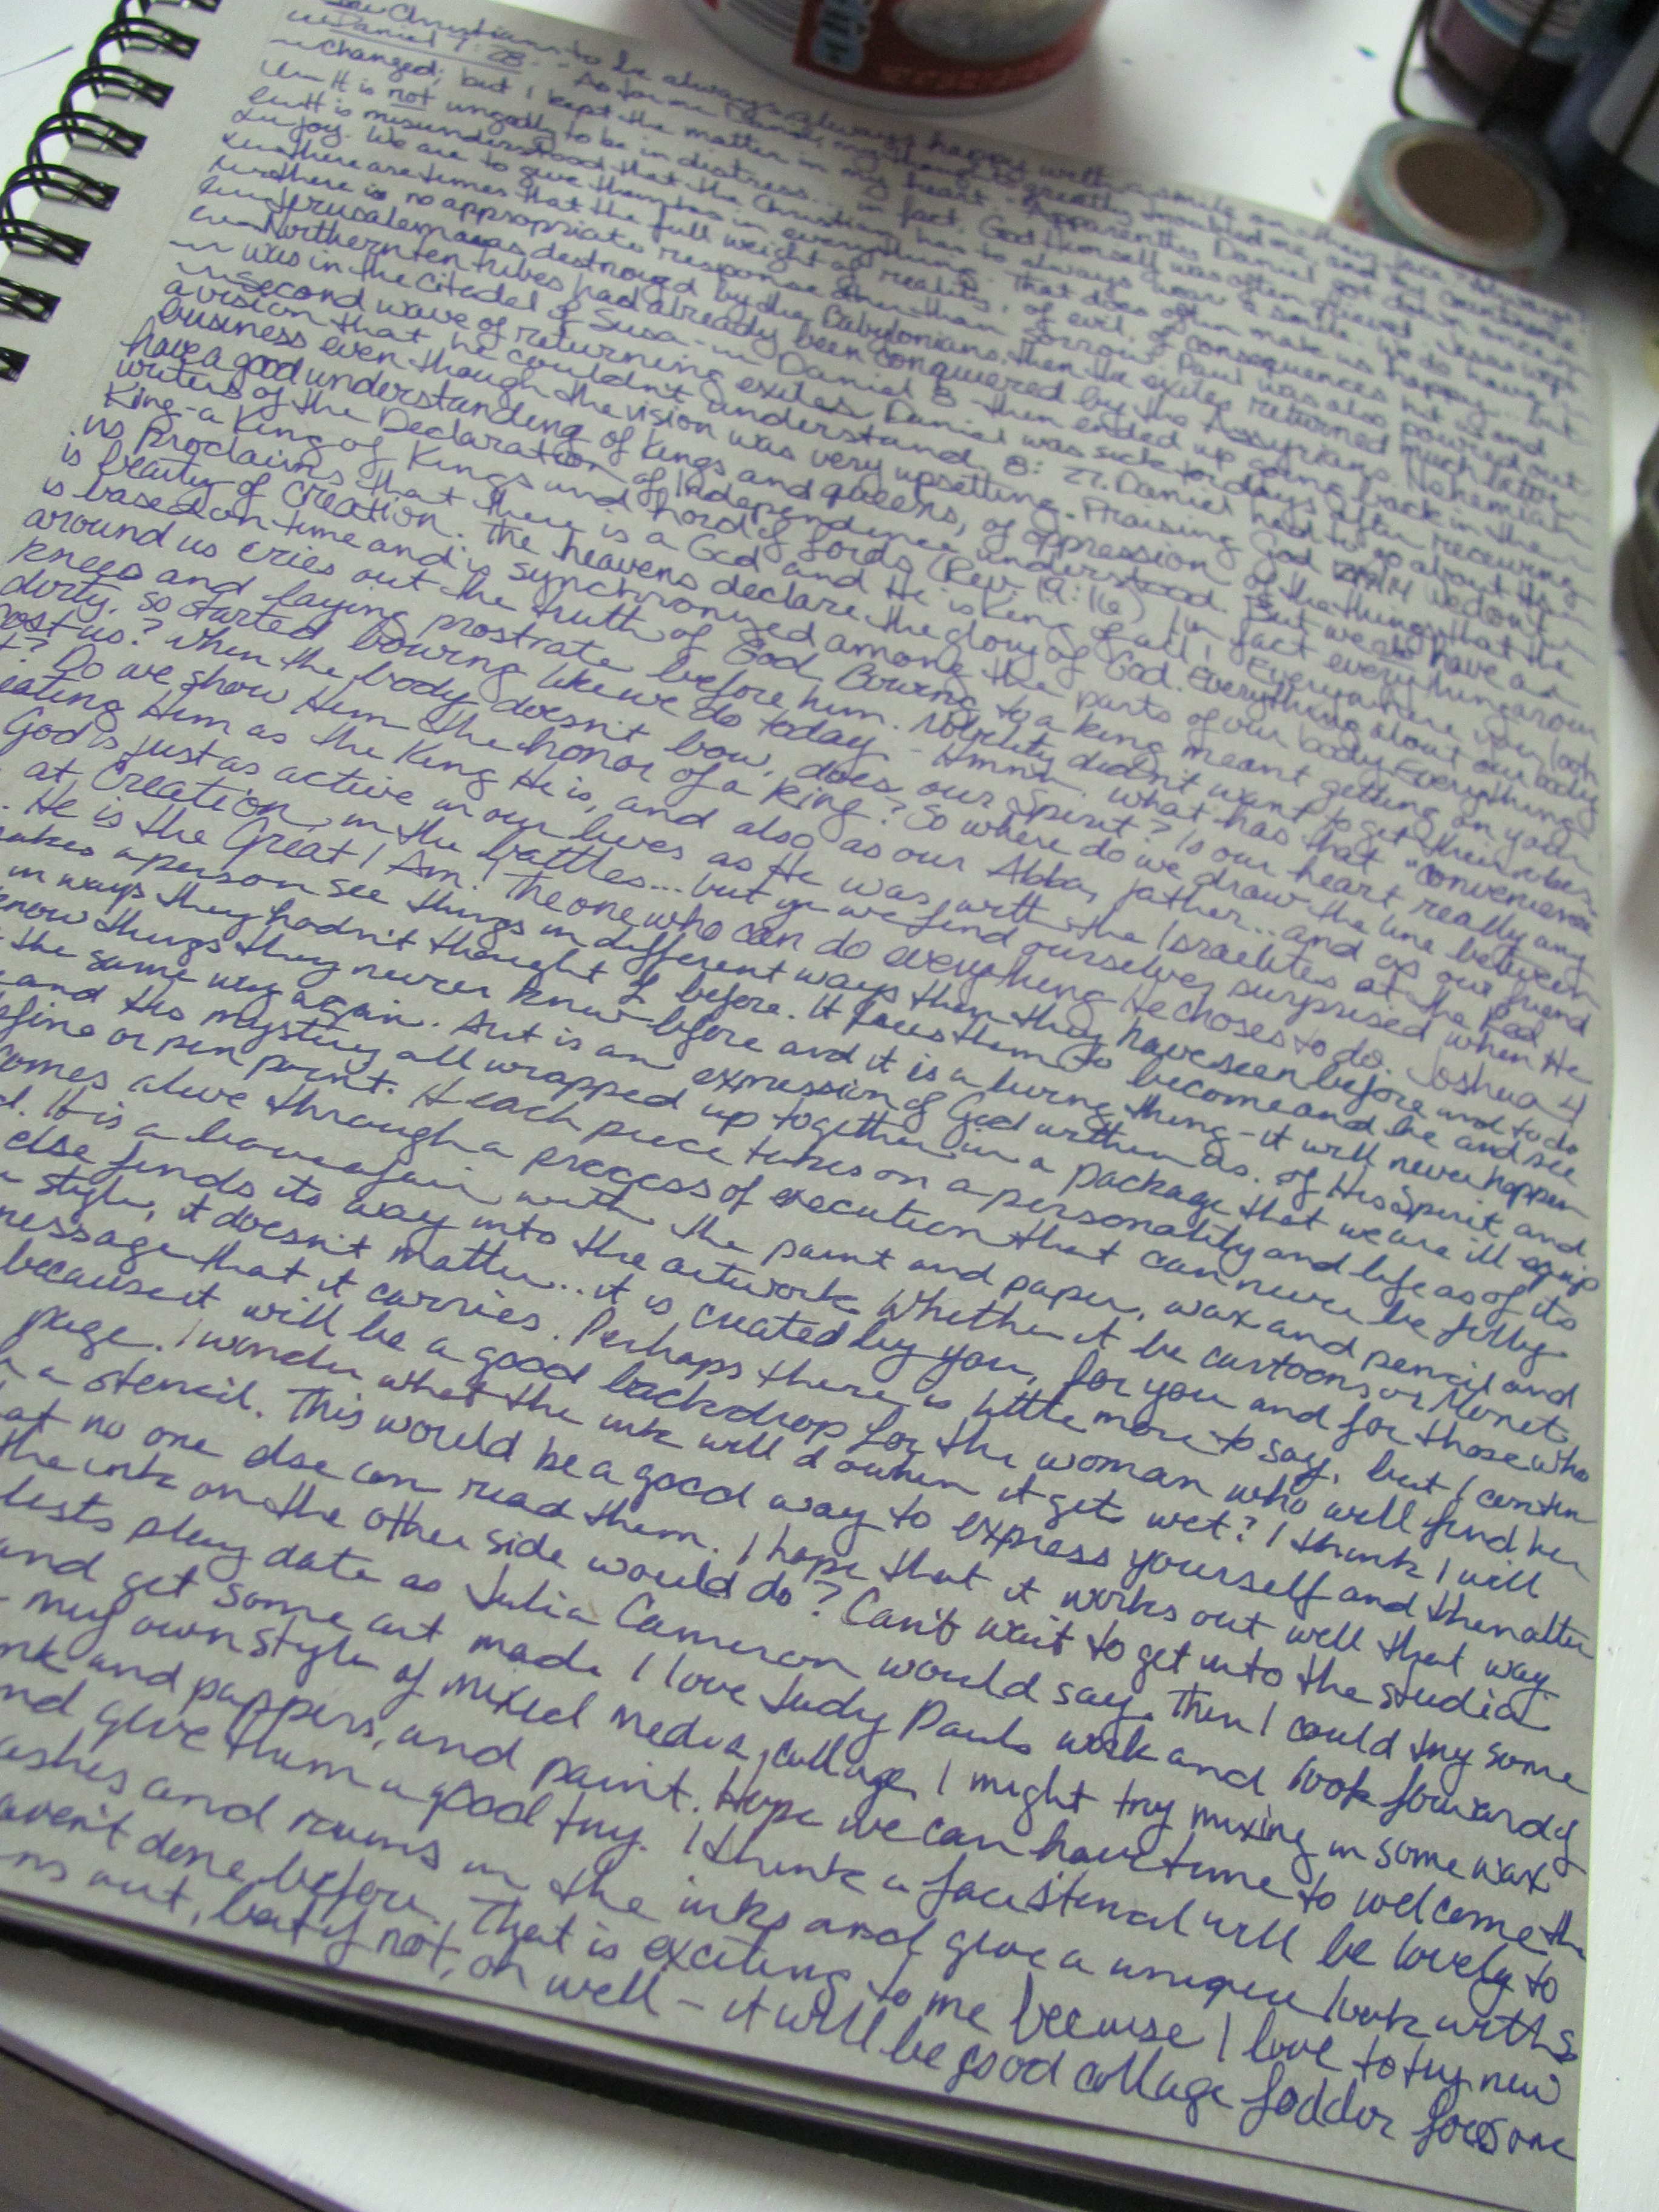 Christians to be always always happy with a smile on their face always.
Daniel 7:28 - As for me Daniel, my thoughts greatly troubled me, and my countenance
changed; but I kept the matter in my heart. Apparently Daniel got down
It is not ungodly to be in distress... in fact, God Himself was often grieved. Jesus wept
is misunderstood that the Christian has to always wear a smile. We do have
joy. We are to give thanks in everything. That does often make us happy... but
there are times that the full weight of reality, of evil, of consequences hit us and
there is no appropriate response other than sorrow. Paul was also poured out
Jerusalem was destroyed by the Babylonians. then the exiles returned much later
Northern ten tribes had already been conquered by the Assyrians. Nehemiah
was in the citadel of Susa - in Daniel 8 - then ended up going back in the
second wave of returning exiles. Daniel was sick for days after receiving
a vision that he couldn't understand. 8:27. Daniel had to go about the
business even though the vision was very upsetting. Praising God We don't
have a good understanding of Kings and queens, of oppression of the things that the
writers of the Declaration of Independence understood. But we do have a
King - a King of Kings and Lord of Lords (Rev. 19:16) In fact everything around
us proclaims that there is a God and He is King of all! Everywhere you look
is beauty of creation. The heavens declare the glory of God. Everything about our body
is based on time and is synchronized among the parts of our body. Everything
around us cries out the truth of God. Bowing to a king meant getting on your
knees and laying prostrate before him. Nobility didn't want to get their robes
dirty. So started bowing like we do today - Hmmm. what has that "convenience"
cost us? When the body doesn't bow, does our Spirit? Is our heart really any
Do we show Him the honor of a King? So where do we draw the line between
eating Him as the King He is, and also as our Abba, father... and as our friend
God is just as active in our lives as He was with the Israelites at the Red
at Creation, in the battles... but yet we find ourselves surprised when He
He is the Great I Am. The one who can do everything He choses to do. Joshua 4
akes a person see things in different ways then they have seen before and to do
in ways they hadn't thought of before. It frees them to become and be and see
know things they never knew before and it is a living thing - it will never happen
the same way again. Art is an expression of God within us. of His Spirit and
and His mystery all wrapped up together in a package that we are ill equip
efine or pen point. It each piece takes on a personality and life as of its
comes alive through a process of execution that can never be fully
d. It is a love affair with the paint and paper, wax and pencil and
else finds its way into the artwork. Whether it be cartoons or Monet
style, it doesn't matter... it is created by you, for you and for those who
message that it carries. Perhaps there is little more to say, but I contin
because it will be a good backdrop for the woman who will find her
page. I wonder what the ink will do when it gets wet? I think I will
a stencil. This would be a good way to express yourself and then alter
at no one else can read them. I hope that it works out well that way.
the ink on the other side would do? Can't wait to get into the studio
tists play date as Julia Cameron would say. Then I could try some
and get some art made. I love Judy Pauls work and look forward
my own style of mixed media, collage. I might try mixing in some wax
nk and pappers, and paint. Hope we can have time to welcome th
nd give them a good try. I think a face stencil will be lovely to
ashes and rowns in the inks and give a unique look with
aven't done before. That is exciting to me because I love to try new
ns out, but if not, oh well - it will be good collage fodder for some